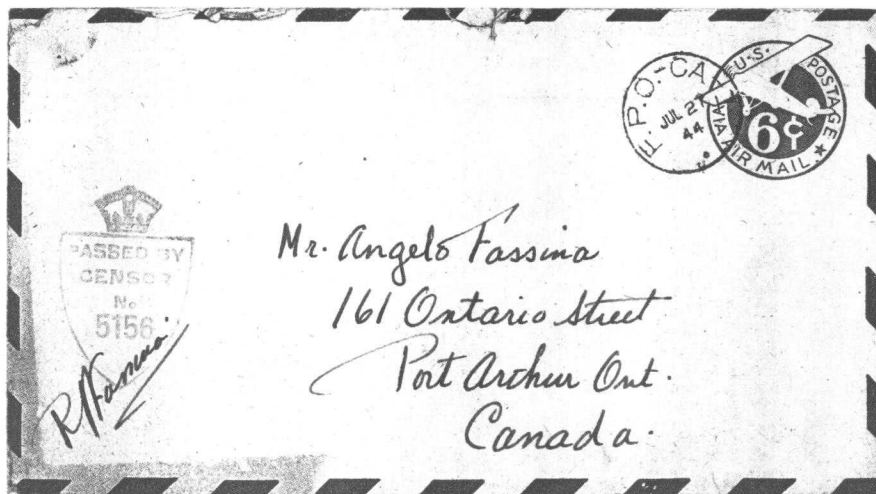 F.P.O.-CA
JUL 27
44
U.S. POSTAGE
6¢
VIA AIR MAIL
PASSED BY
CENSOR
No
5156
Mr. Angelo Fassina
161 Ontario Street
Port Arthur Ont.
Canada.